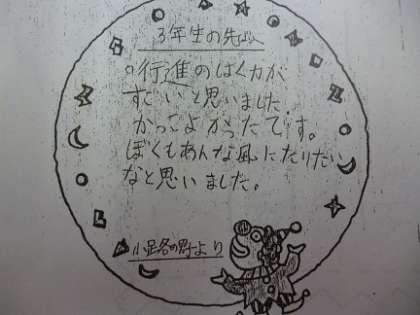 3年生の先ぱいへ
○行進のはく力が
すごいと思いました。
かっこよかったです。
ぼくもあんな風になりたい
なと思いました。
より